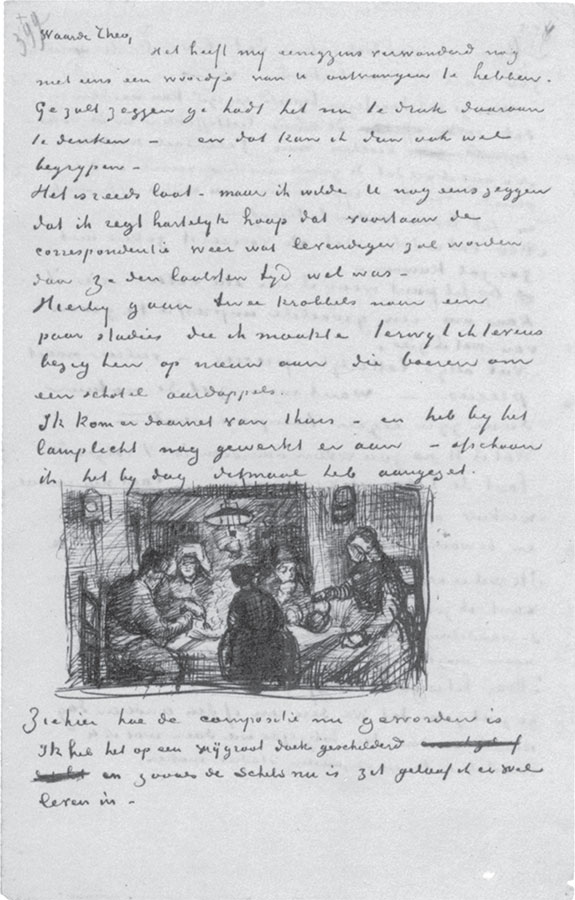 399
Waarde Theo,
Het heeft mij eenigzins verwonderd nog
niet eens een woordje van U ontvangen te hebben.
Ge zult zeggen ge hadt het nu te druk daaraan
te denken – en dat kan ik dan ook wel
begrypen –
Het is reeds laat – maar ik wilde U nog eens zeggen
dat ik regt hartelyk hoop dat voortaan de
correspondentie weer wat levendiger zal worden
dan ze den laatsten tyd wel was –
Hierby gaan twee krabbels naar een
paar studies die ik maakte terwyl ik tevens
bezig ben op nieuw aan die boeren om
een schotel aardappels.
Ik kom er daarnet van thuis – en heb by het
lamplicht nog gewerkt er aan – ofschoon
ik het by dag ditmaal heb aangezet.
Ziehier hoe de compositie nu geworden is
Ik heb het op een vrij groot doek geschilderd
en zooals de schets nu is zit geloof ik er wel
leven in –